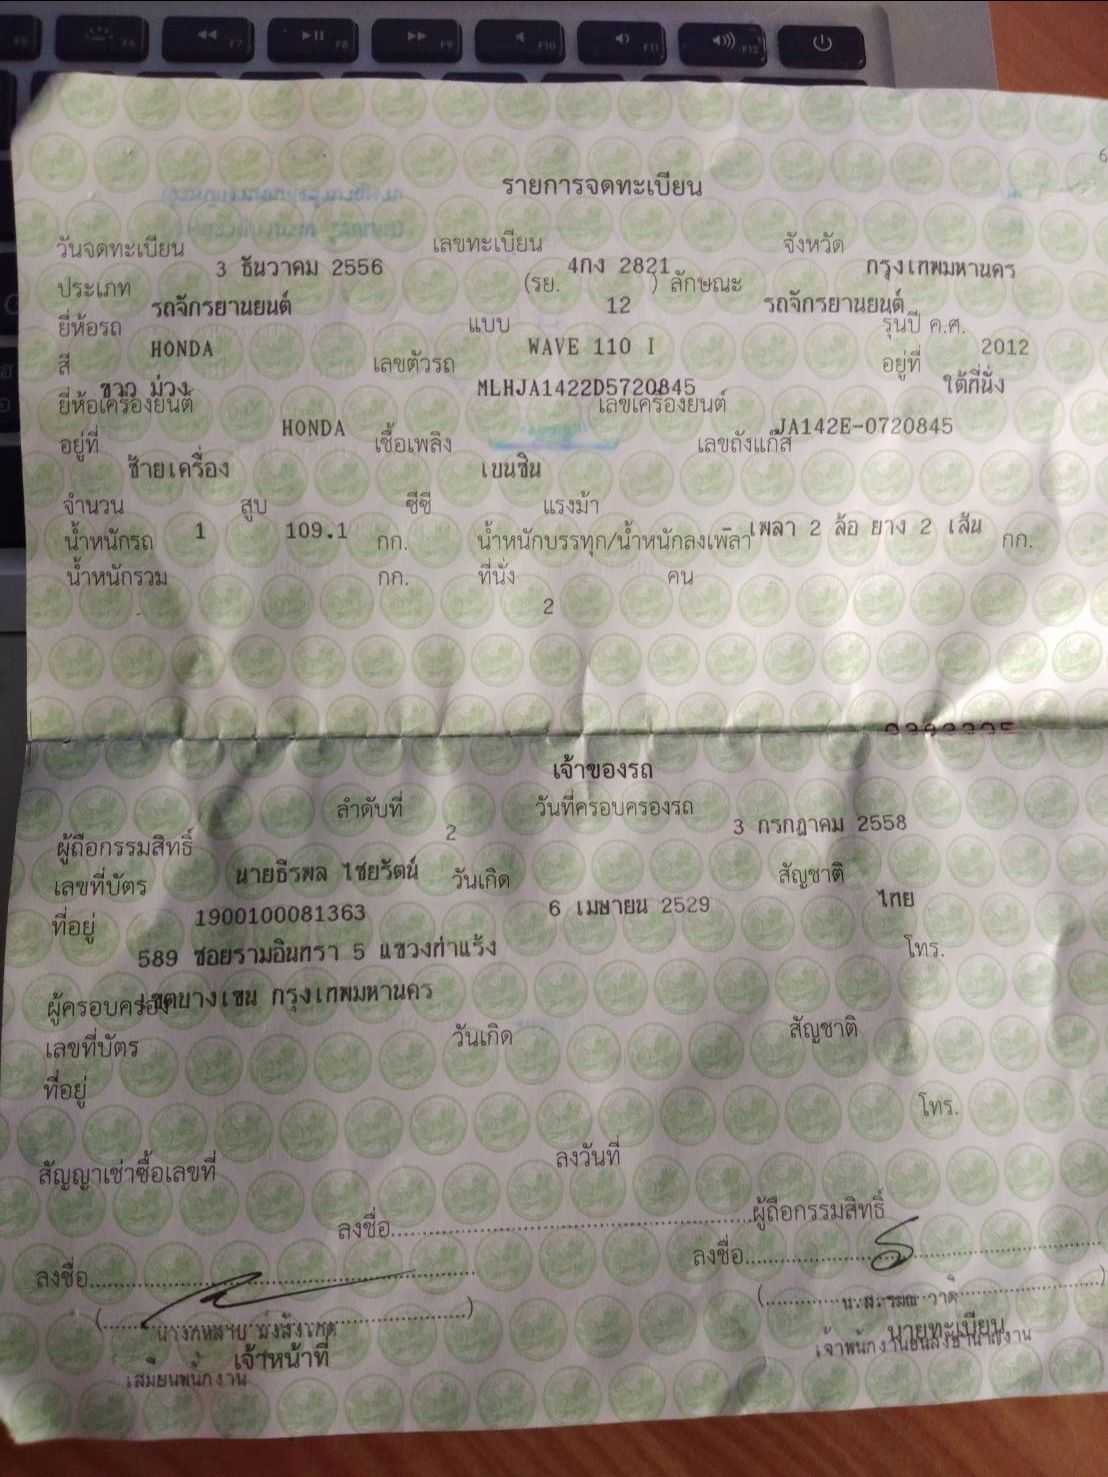 รายการจดทะเบียน
วันจดทะเบียน 3 ธันวาคม 2556 เลขทะเบียน 4กง 2821 จังหวัด กรุงเทพมหานคร
ประเภท รถจักรยานยนต์ (รย. 12 ) ลักษณะ รถจักรยานยนต์
ยี่ห้อรถ HONDA แบบ WAVE 110 I รุ่นปี ค.ศ. 2012
สี ขาว ม่วง เลขตัวรถ MLHJA1422D5720845 อยู่ที่ ใต้ที่นั่ง
ยี่ห้อเครื่องยนต์ HONDA เลขเครื่องยนต์ JA142E-0720845
อยู่ที่ ซ้ายเครื่อง เชื้อเพลิง เบนซิน เลขถังแก๊ส
จำนวน 1 สูบ 109.1 ซีซี - แรงม้า เพลา 2 ล้อ ยาง 2 เส้น
น้ำหนักรถ กก. น้ำหนักบรรทุก/น้ำหนักลงเพลา กก.
น้ำหนักรวม กก. ที่นั่ง 2 คน
เจ้าของรถ
ลำดับที่ 2 วันที่ครอบครองรถ 3 กรกฎาคม 2558
ผู้ถือกรรมสิทธิ์ นายธีรพล ไชยรัตน์
เลขที่บัตร 1900100081363 วันเกิด 6 เมษายน 2529 สัญชาติ ไทย
ที่อยู่ 589 ซอยรามอินทรา 5 แขวงท่าแร้ง โทร.
เขตบางเขน กรุงเทพมหานคร
ผู้ครอบครอง
เลขที่บัตร วันเกิด สัญชาติ
ที่อยู่ โทร.
สัญญาเช่าซื้อเลขที่ ลงวันที่
ลงชื่อ ผู้ถือกรรมสิทธิ์
ลงชื่อ ลงชื่อ
เจ้าหน้าที่ นายทะเบียน
เสมียนพนักงาน เจ้าพนักงานขนส่งชำนาญงาน